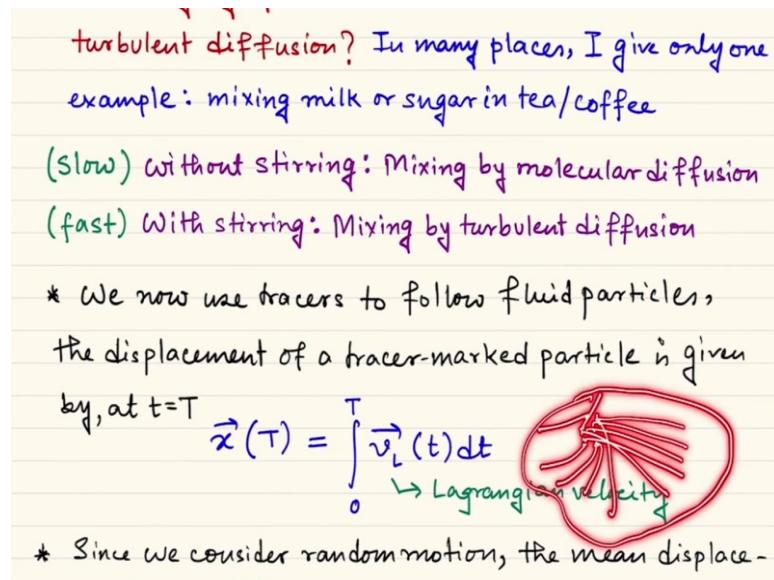 turbulent diffusion? In many places, I give only one
example: mixing milk or sugar in tea/coffee
(slow) without stirring: Mixing by molecular diffusion
(fast) With stirring: Mixing by turbulent diffusion
* We now use tracers to follow fluid particles,
the displacement of a tracer-marked particle is given
by, at t=T
$\vec{x}(T) = \int_0^T \vec{v_L}(t) dt$
↳ Lagrangian velocity
* Since we consider random motion, the mean displace-